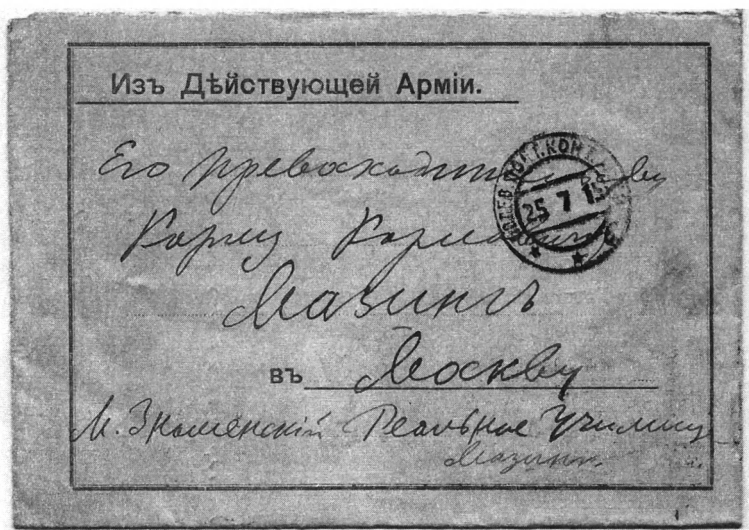 Изъ Дѣйствующей Арміи.
Его Превосходительству
Карлу Карловичу
Мазингъ
въ Москву
М. Знаменскій Реальное Училище
Мазинга.
ПОЛЕВ. ПОЧТ. КОНТ.
25 7 15